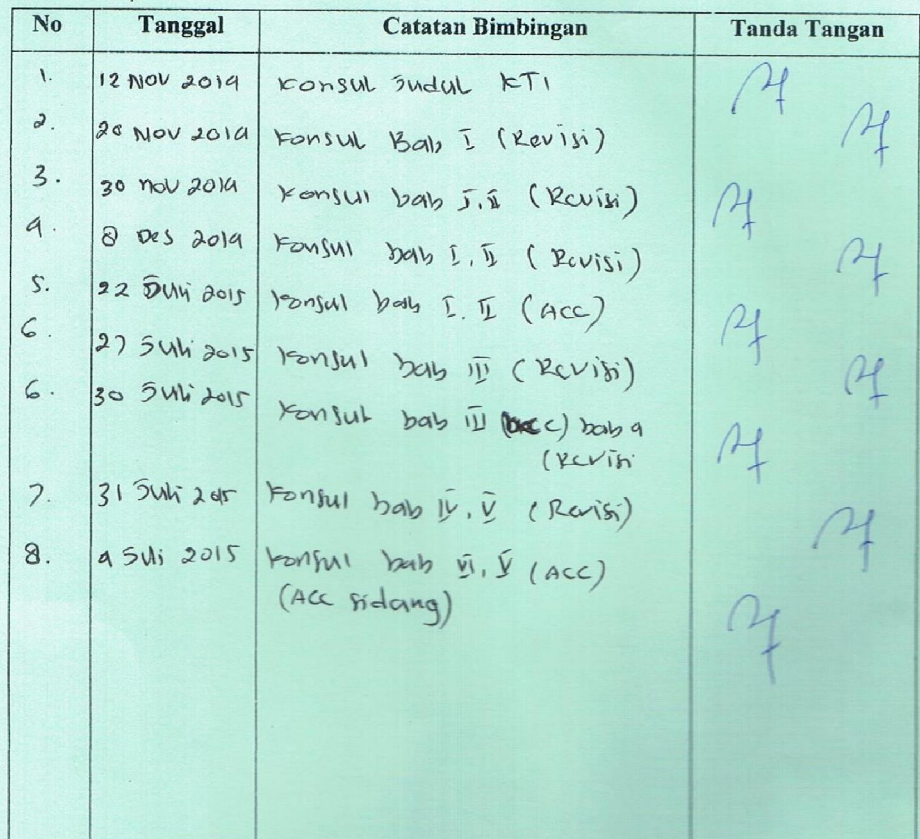 No Tanggal Catatan Bimbingan Tanda Tangan
1. 12 NOV 2014 Konsul Judul KTI
2. 28 NOV 2014 Konsul Bab I (Revisi)
3. 30 NOV 2014 Konsul bab I, II (Revisi)
4. 8 Des 2014 Konsul bab I, II (Revisi)
5. 22 Juli 2015 Konsul bab I, II (ACC)
6. 27 Juli 2015 Konsul bab III (Revisi)
6. 30 Juli 2015 Konsul bab III (acc) bab 4
(Revisi
7. 31 Juli 2015 Konsul bab IV, V (Revisi)
8. 4 Juli 2015 Konsul bab VI, V (ACC)
(ACC sidang)